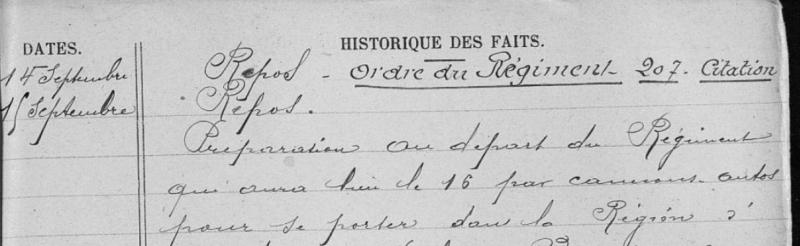 DATES. HISTORIQUE DES FAITS.
14 Septembre Repos - Ordre du Régiment 207. Citation
15 Septembre Repos.
Préparation au départ du Régiment
qui aura lieu le 16 par camions-autos
pour se porter dans la Région d'